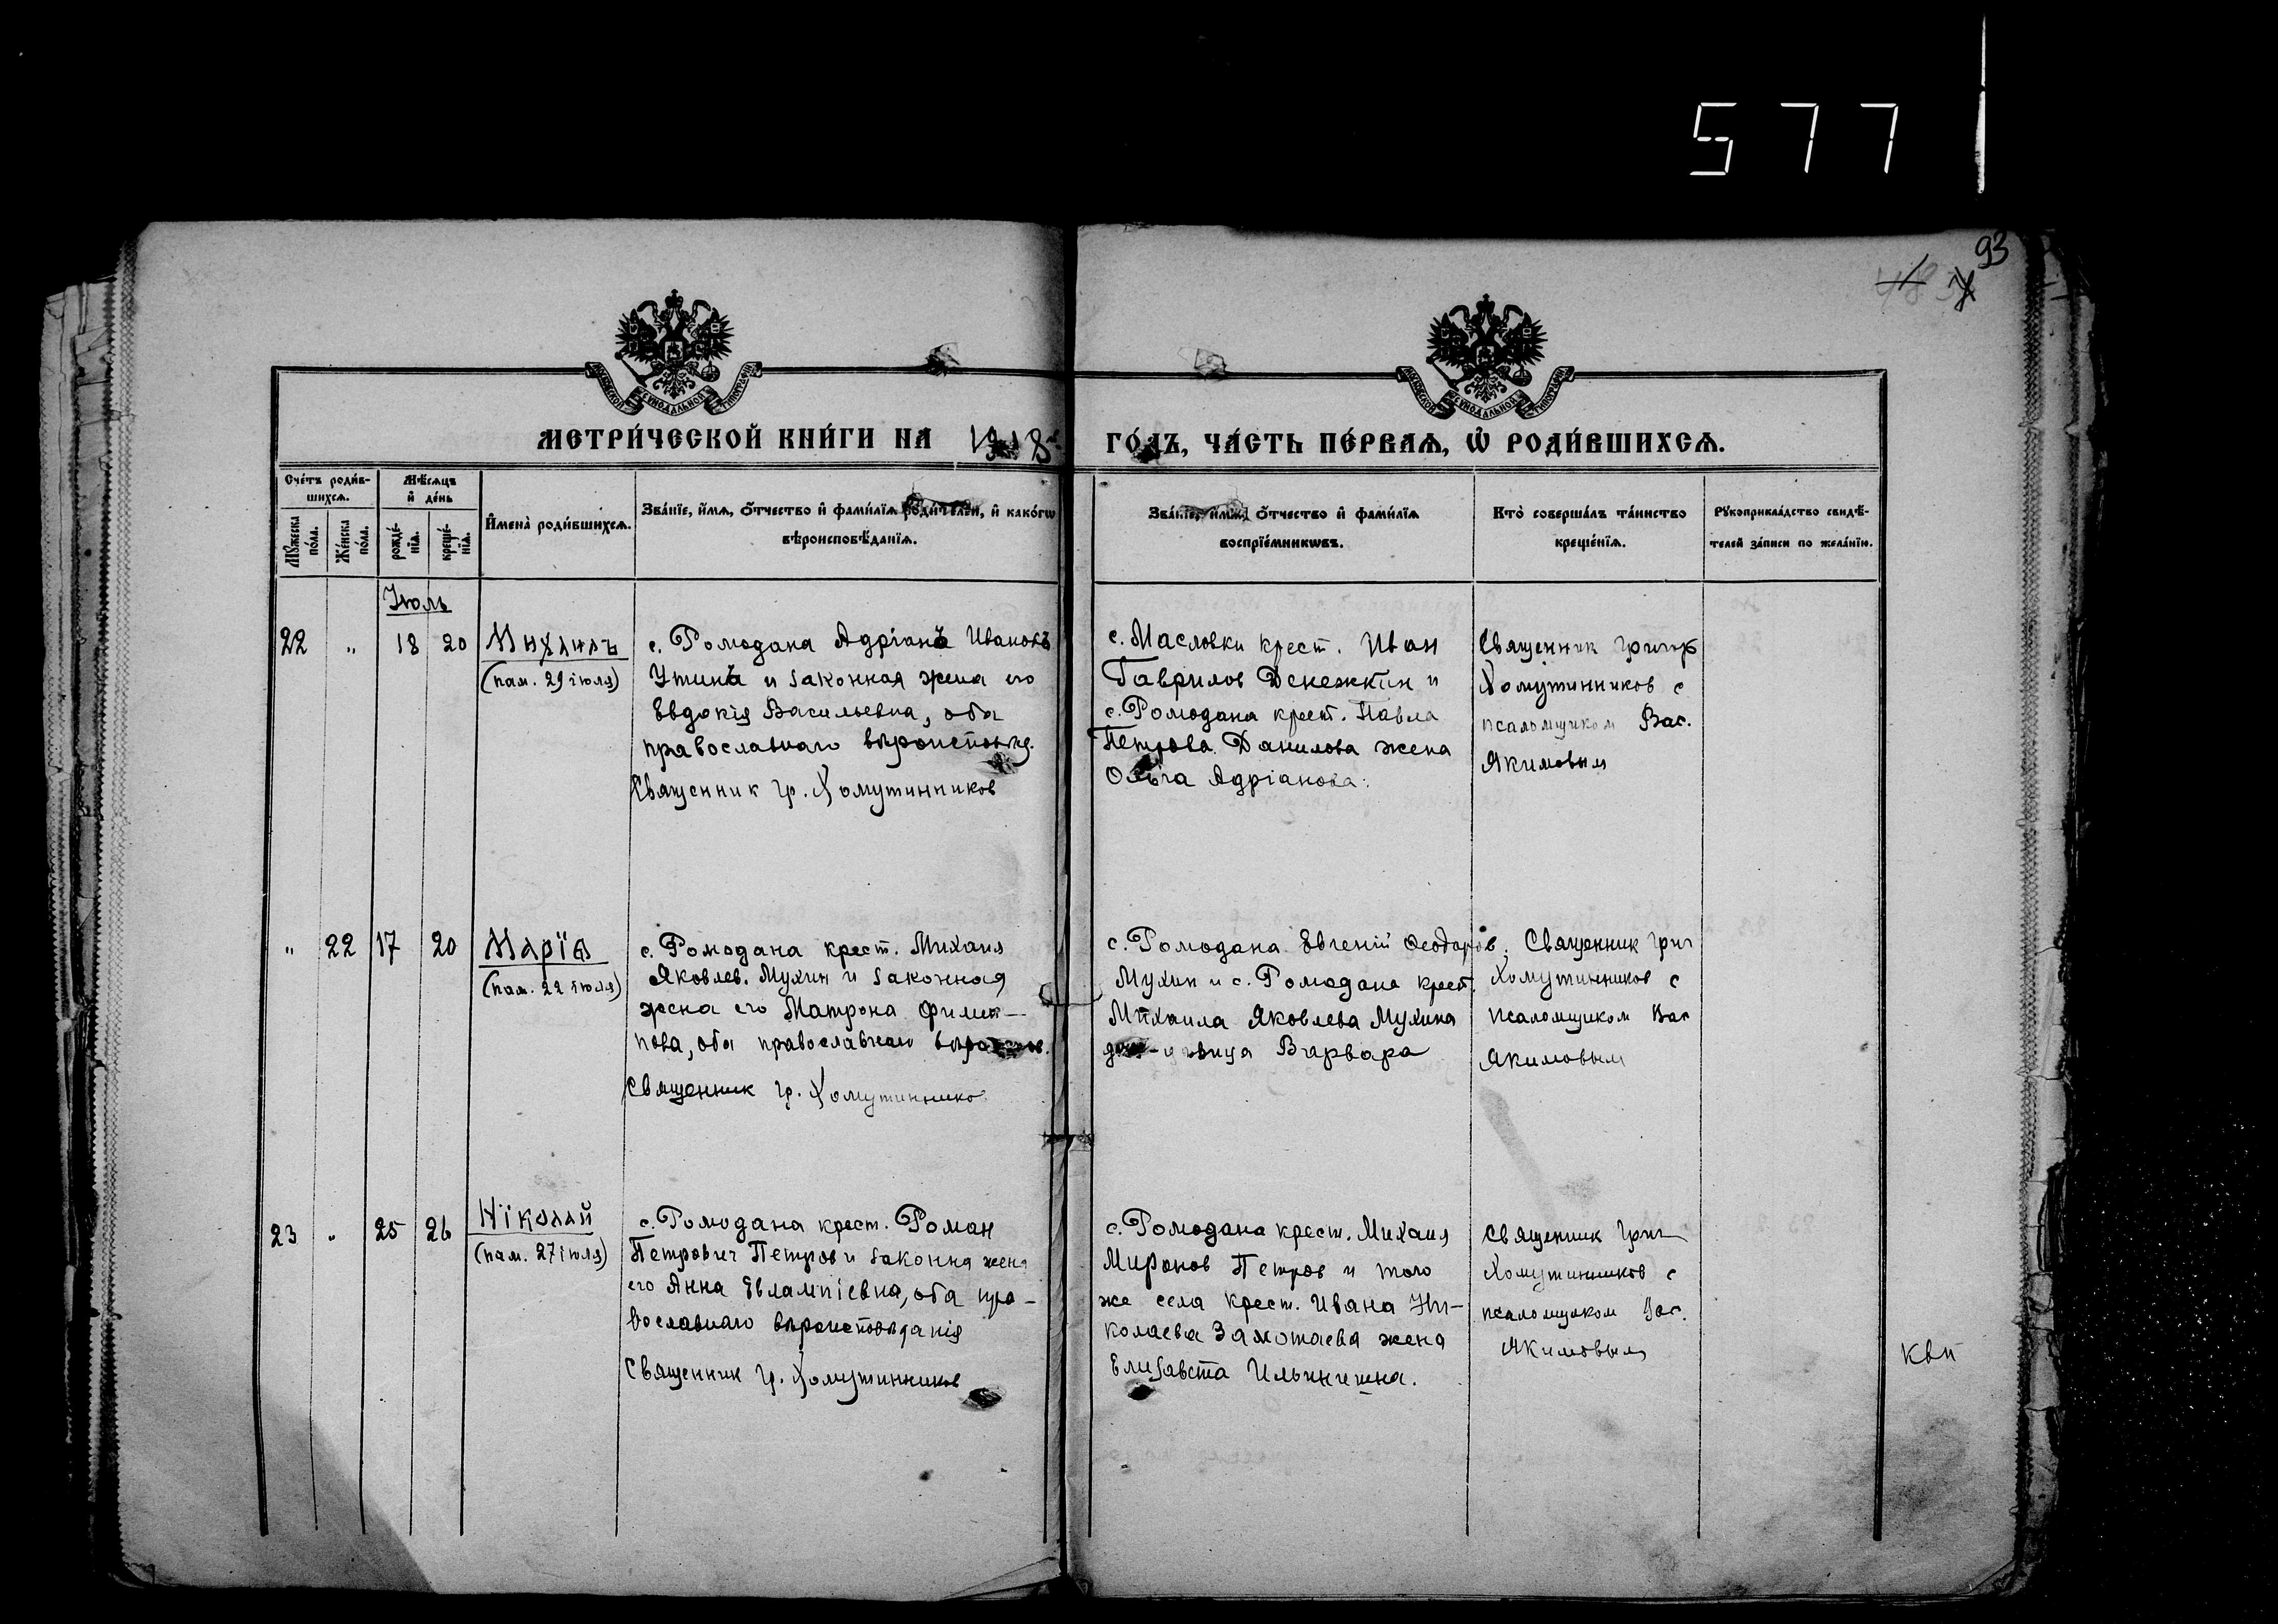 577
93
МОСКОВСКОЙ СѴНОДАЛЬНОЙ ТИПОГРАФІИ
МОСКОВСКОЙ СѴНОДАЛЬНОЙ ТИПОГРАФІИ
МЕТРИ́ЧЕСКОЙ КНИ́ГИ НА 1918 ГО́ДЪ, ЧА́СТЬ ПЕ́РВАѦ, Ѽ РОДИ́ВШИХСѦ.
Сче́тъ роди́в-
шихсѧ.
Мꙋжеска по́ла.
Же́нска по́ла.
Мѣ́сѧцъ
и҆ де́нь
рожде́-
нїѧ.
креще́-
нїѧ.
И҆мена̀ роди́вшихсѧ.
Зва́нїе, и҆́мѧ, ѻ҆́тчество и҆ фами́лїѧ роди́телей, и҆ како́гѡ
вѣроисповѣ́данїѧ.
Зва́нїе, и҆́мѧ, ѻ҆́тчество и҆ фами́лїѧ
воспрїе́мникѡвъ.
Кто̀ соверша́лъ та́инство
креще́нїѧ.
Рꙋкоприкла́дство свидѣ́-
телей за́писи по жела́нїю.
Июль
22 " 18 20 Михаилъ
(пам. 29 iюля)
с. Ромодана Адрiанъ Ивановъ
Утинъ и законная жена его
Евдокiя Васильевна, оба
православнаго вѣроисповѣд.
Священник Гр. Хомутинников
с. Масловки крест. Иван
Гаврилов Денежкин и
с. Ромодана крест. Павла
Петрова Данилова жена
Ольга Адрiанова.
Священник Григор
Хомутинников с
псаломщиком Вас.
Якимовым
" 22 17 20 Марiя
(пам. 22 iюля)
с. Ромодана крест. Михаил
Яковлев. Мухин и законная
жена его Матрона Филип-
пова, оба православнаго
Священник Гр. Хомутинников
с. Ромодана Евгенiй Феодоров.
Мухин и с. Ромодана крест.
Михаила Яковлева Мухина
девица Варвара
Священник Григ
Хомутинников с
псаломщиком Вас
Якимовым
23 " 25 26 Нiколай
(пам. 27 iюля)
с. Ромодана крест. Роман
Петрович Петров и законна жена
его Анна Евлампiевна, оба пра-
вославнаго вѣроисповѣданiя
Священник Гр. Хомутинников
с. Ромодана крест. Михаил
Миронов Петров и того
же села крест. Ивана Ни-
колаева Замотаева жена
Елизавета Ильинична.
Священник Григ
Хомутинников с
псаломщиком Вас.
Якимовым